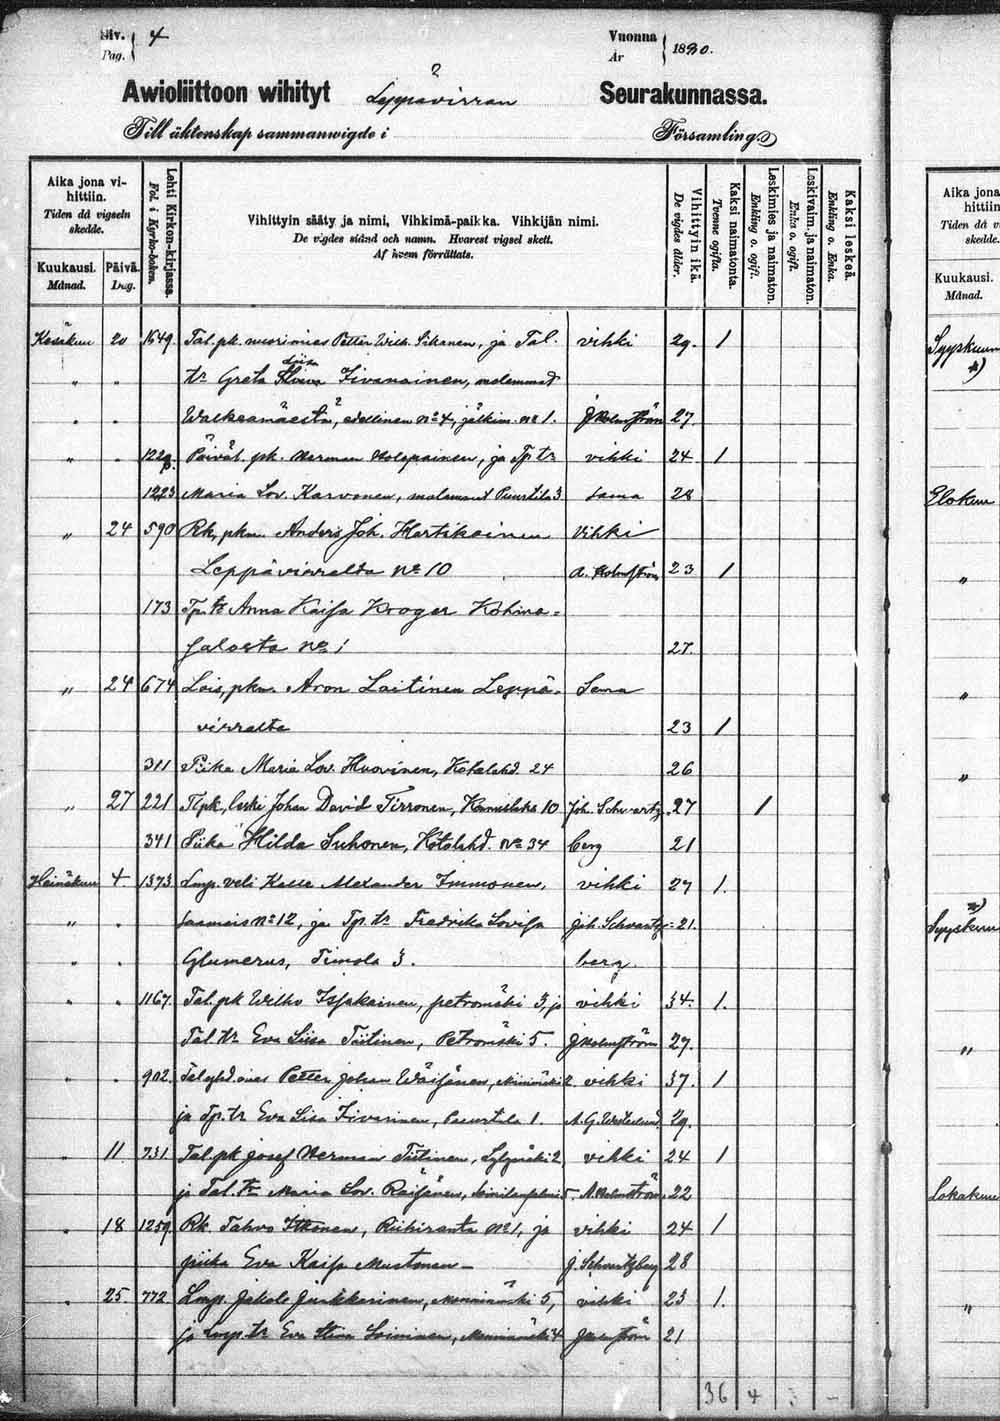 Siv. 4 Vuonna
Pag. År 1880.
Awioliittoon wihityt Leppävirran Seurakunnassa.
Till äktenskap sammanwigde i Församling.
Aika jona vihittiin.
Tiden då vigseln skedde.
Kuukausi. Månad.
Päivä. Dag.
Lehti Kirkon-kirjassa.
Fol. i Kyrko-boken.
Vihittyin sääty ja nimi, Vihkimä-paikka. Vihkijän nimi.
De vigdes stånd och namn. Hvarest vigsel skett.
Af hvem förrättats.
Vihittyin ikä.
De vigdes ålder.
Kaksi naimatonta.
Tvenne ogifta.
Leskimies ja naimaton.
Enkling o. ogift.
Leskivaim. ja naimaton.
Enka o. ogift.
Kaksi leskeä.
Enkling o. Enka.
Kesäkuu 20 1649. Tal. pk. nuorimies Petter Wilh. Sikanen, ja Tal. vihki 29. 1
" " tr Greta Stiina Iivanainen, molemmat
Walkeamäestä, edellinen No 4, jälkim. No 1. J Holmström 27.
" 122 Päiväl. pk. Herman Kolepainen, ja Tp. tr vihki 24 1
1223 Maria Lov. Karvonen, molemmat Puurtila 3 sama 28
" 24 590 Rk, pkn. Anders Joh. Hartikainen Vihki
Leppävirralta No 10 A. Holmström 23 1
173 Tp. tr Anna Kaisa Kroger Kohina-
salosta No 1 27.
" 24 674 Lois, pkn. Aron Laitinen Leppä- Sama
virralta 23 1
311 Piika Maria Lov. Huovinen, Kotalahd. 24 26
" 27 221 Tlpk, leski Johan David Tirronen, 10 Joh. Schwartz 27 1
341 Piika Hilda Suhonen, Kotalahd. No 34 berg 21
Heinäkuu 4 1373 Lmp. veli Kalle Alexander Immonen, vihki 27 1.
" . Saamais No 12, ja Tp. tr Fredrika Lovisa Joh. Schwartz- 21.
" . Glumerus, Timola 3. berg.
" . 1167. Tal. pk Wilho Issakainen, petromäki 3, ja vihki 34. 1.
Tal. tr Eva Liisa Tiitinen, Petromäki 5. J Holmström 27.
" . 902 Petter Johan Wäisänen, 2 vihki 37. 1
ja Tp. tr Eva Liisa Iivarinen, Puurtila 1. A. G. Westerlund 29.
. 11 731 Tal. pk Josef Herman Tiitinen, 2 vihki 24 1
ja Tal. tr Maria Lov. Räisänen, 5. A. Holmström 22
. 18 1259. Rk. Tahvo Itkonen, Riihiranta No 1, ja vihki 24 1
piika Eva Kaisa Mustonen - J. Schwartzberg 28
. 25. 772 Lmp. Jakob Jäskkarinen, 5, vihki 23 1.
ja Lmp. tr Eva Stina Soininen, 4 J Holmström 21
36 4 : -
Aika jona
hittiin
Tiden då v
skedde.
Kuukausi.
Månad.
Syyskuun
Elokuu
"
"
"
Syyskuun
"
Lokakuu
"